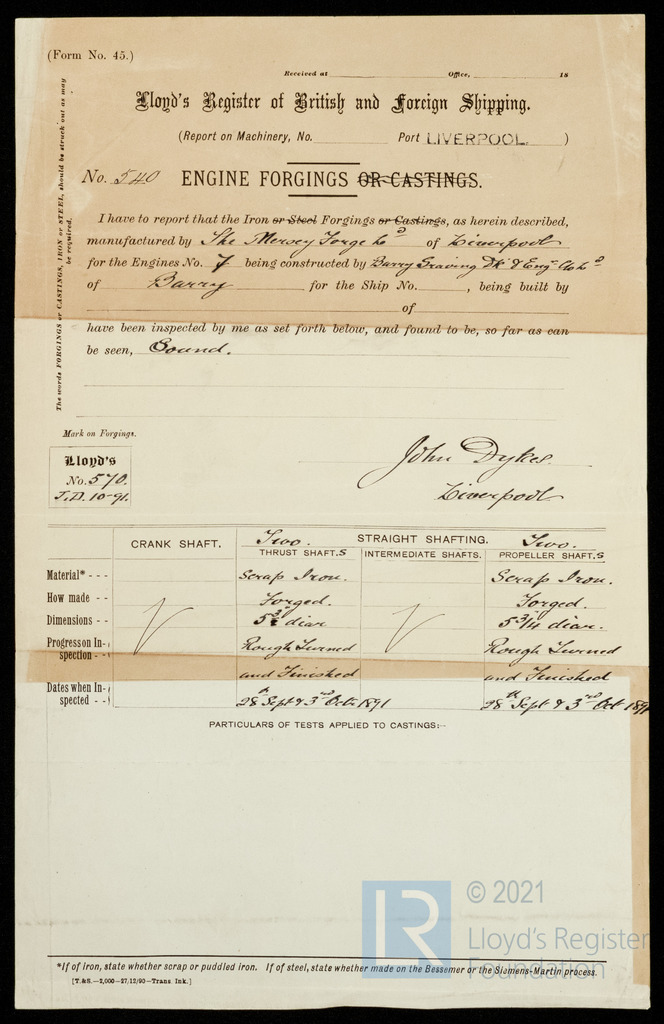 (Form No. 45.)
Received at Office, 18
Lloyd's Register of British and Foreign Shipping.
(Report on Machinery, No. Port LIVERPOOL. )
No. 540 ENGINE FORGINGS OR CASTINGS.
The words FORGINGS or CASTINGS, IRON or STEEL, should be struck out as may be required.
I have to report that the Iron or Steel Forgings or Castings, as herein described,
manufactured by The Mersey Forge Lo of Liverpool
for the Engines No. 7 being constructed by Barry Graving Dk & Eng
of Barry for the Ship No. , being built by
of
have been inspected by me as set forth below, and found to be, so far as can
be seen, Sound.
Mark on Forgings.
Lloyd's
No. 570.
J.D. 10-91.
John Dykes.
Liverpool
CRANK SHAFT. Two. THRUST SHAFT.S STRAIGHT SHAFTING. INTERMEDIATE SHAFTS. Two. PROPELLER SHAFT.S
Material* - - - Scrap Iron. Scrap Iron.
How made - - Forged. Forged.
Dimensions - - 5 3/4 diar 5 3/4 diar.
Progress on Inspection - - Rough Turned Rough Turned
and Finished and Finished
Dates when Inspected - - 28th Sept & 3rd Oct 1891 28th Sept & 3rd Oct 1891
PARTICULARS OF TESTS APPLIED TO CASTINGS:-
© 2021
LR
Lloyd's Register
Foundation
*If of iron, state whether scrap or puddled iron. If of steel, state whether made on the Bessemer or the Siemens-Martin process.
[T.&S.—2,000—27/12/90—Trans Ink.]